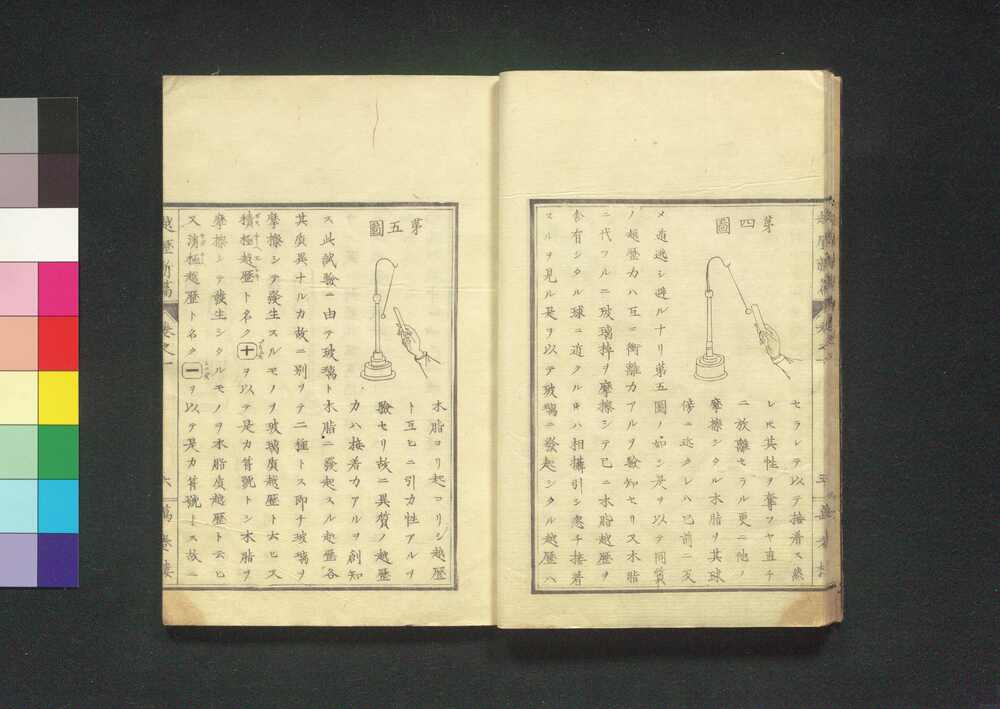 第四圖
セラレテ以テ接着ス然
レ𪜈其性ヲ奪フヤ直チ
ニ放離セラル更ニ他ノ
摩擦シタル水脂ヲ其球
傍ニ近クレハ已前ニ反
メ遁逃シ避ルナリ第五圖ノ如シ是ヲ以テ同質
ノ越歴力ハ互ニ衝離力アルヲ験知セリ又木脂
ニ代フルニ玻璃掉ヲ摩擦シテ已ニ木脂越歴ヲ
含有シタル球ニ近クル𪜈ハ相攝引シ忽チ接着
スルヲ見ル是ヲ以テ玻璃ニ發起シタル越歴ハ
第五圖
木脂ヨリ起コリシ越歴
ト互ヒニ引力性アルヲ
驗セリ故ニ異質ノ越歴
力ハ接着力アルヲ創知
ス此試驗ニ由テ玻璃ト木脂ニ發起スル越歴各
其質異ナルカ故ニ別ヲテ二種トス即チ玻璃ヲ
摩擦シテ發生スルモノヲ玻璃質越歴ト云ヒ又
積極越歴ト名ク十ヲ以テ是カ符號トシ木脂ヲ
摩擦シテ發生シタルモノヲ木脂質越歴ト云ヒ
又消極越歴ト名ク一ヲ以テ是カ符號トス故ニ
卷之一
六